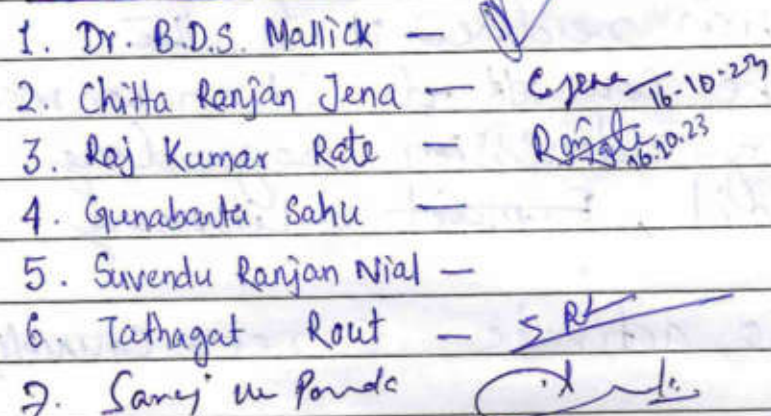 1. Dr. B.D.S. Mallick —
2. Chitta Ranjan Jena — CJena 16-10-23
3. Raj Kumar Rate — 16.10.23
4. Gunabanta Sahu —
5. Suvendu Ranjan Nial —
6 Tathagat Rout —
7. Saroj